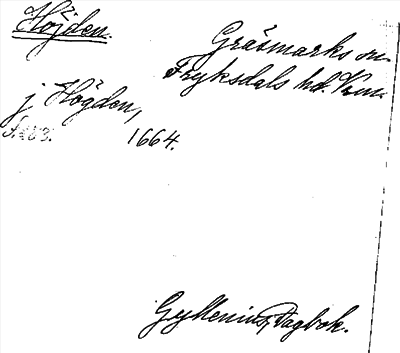 Höjden.
Gräsmarks sn
Fryksdals hd. Värm.
j Högden,
1664.
Gyllenius, Dagbok.